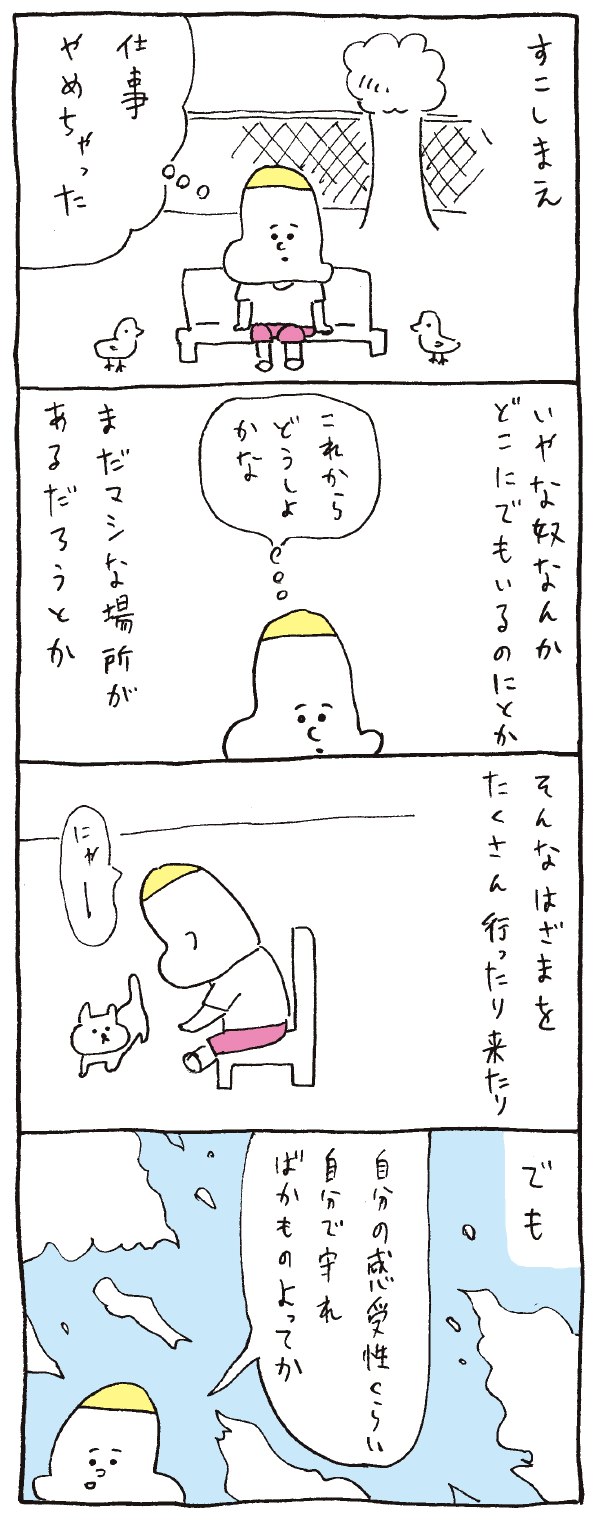 すこしまえ
仕事
やめちゃった
いやな奴なんか
どこにでもいるのにとか
これから
どうしよ
かな
まだマシな場所が
あるだろうとか
そんなはざまを
たくさん行ったり来たり
にゃー
でも
自分の感受性くらい
自分で守れ
ばかものよってか